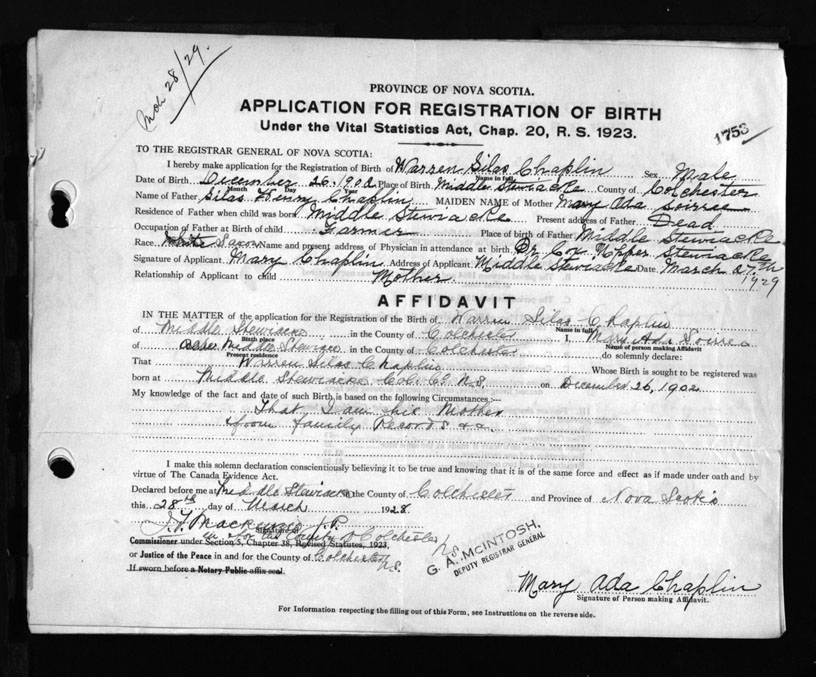 Mch 28/29.
PROVINCE OF NOVA SCOTIA.
APPLICATION FOR REGISTRATION OF BIRTH
Under the Vital Statistics Act, Chap. 20, R. S. 1923.
1753
TO THE REGISTRAR GENERAL OF NOVA SCOTIA:
I hereby make application for the Registration of Birth of Warren Silas Chaplin Sex Male
Name in full
Date of Birth December 26, 1902 Place of Birth Middle Stewiacke County of Colchester
Month Day Year
Name of Father Silas Henry Chaplin MAIDEN NAME of Mother Mary Ada
Residence of Father when child was born Middle Stewiacke Present address of Father Dead
Occupation of Father at Birth of child Farmer Place of birth of Father Middle Stewiacke
Race. White Name and present address of Physician in attendance at birth Dr Cox Upper Stewiacke
Signature of Applicant Mary Chaplin Address of Applicant Middle Stewiacke Date March 27th
1929
Relationship of Applicant to child Mother.
AFFIDAVIT
IN THE MATTER of the application for the Registration of the Birth of Warren Silas Chaplin
Name in full
of Middle Stewiacke in the County of Colchester I, Mary Ada
Birth place Name of person making Affidavit
of Middle Stewiacke in the County of Colchester do solemnly declare:
Present residence
That Warren Silas Chaplin Whose Birth is sought to be registered was
born at Middle Stewiacke Col. Co. N.S. on December 26, 1902
My knowledge of the fact and date of such Birth is based on the following Circumstances:—
That I am his Mother
from Family Records
I make this solemn declaration conscientiously believing it to be true and knowing that it is of the same force and effect as if made under oath and by
virtue of The Canada Evidence Act.
Declared before me at Middle Stewiacke in the County of Colchester and Province of Nova Scotia
this 28th day of March 1928
J.P.
in & for the County of Colchester
Commissioner under Section 5, Chapter 38, Revised Statutes, 1923,
or Justice of the Peace in and for the County of Colchester N.S.
If sworn before a Notary Public affix seal.
G. A. McINTOSH,
DEPUTY REGISTRAR GENERAL
Mary Ada Chaplin
Signature of Person making Affidavit.
For Information respecting the filling out of this Form, see Instructions on the reverse side.